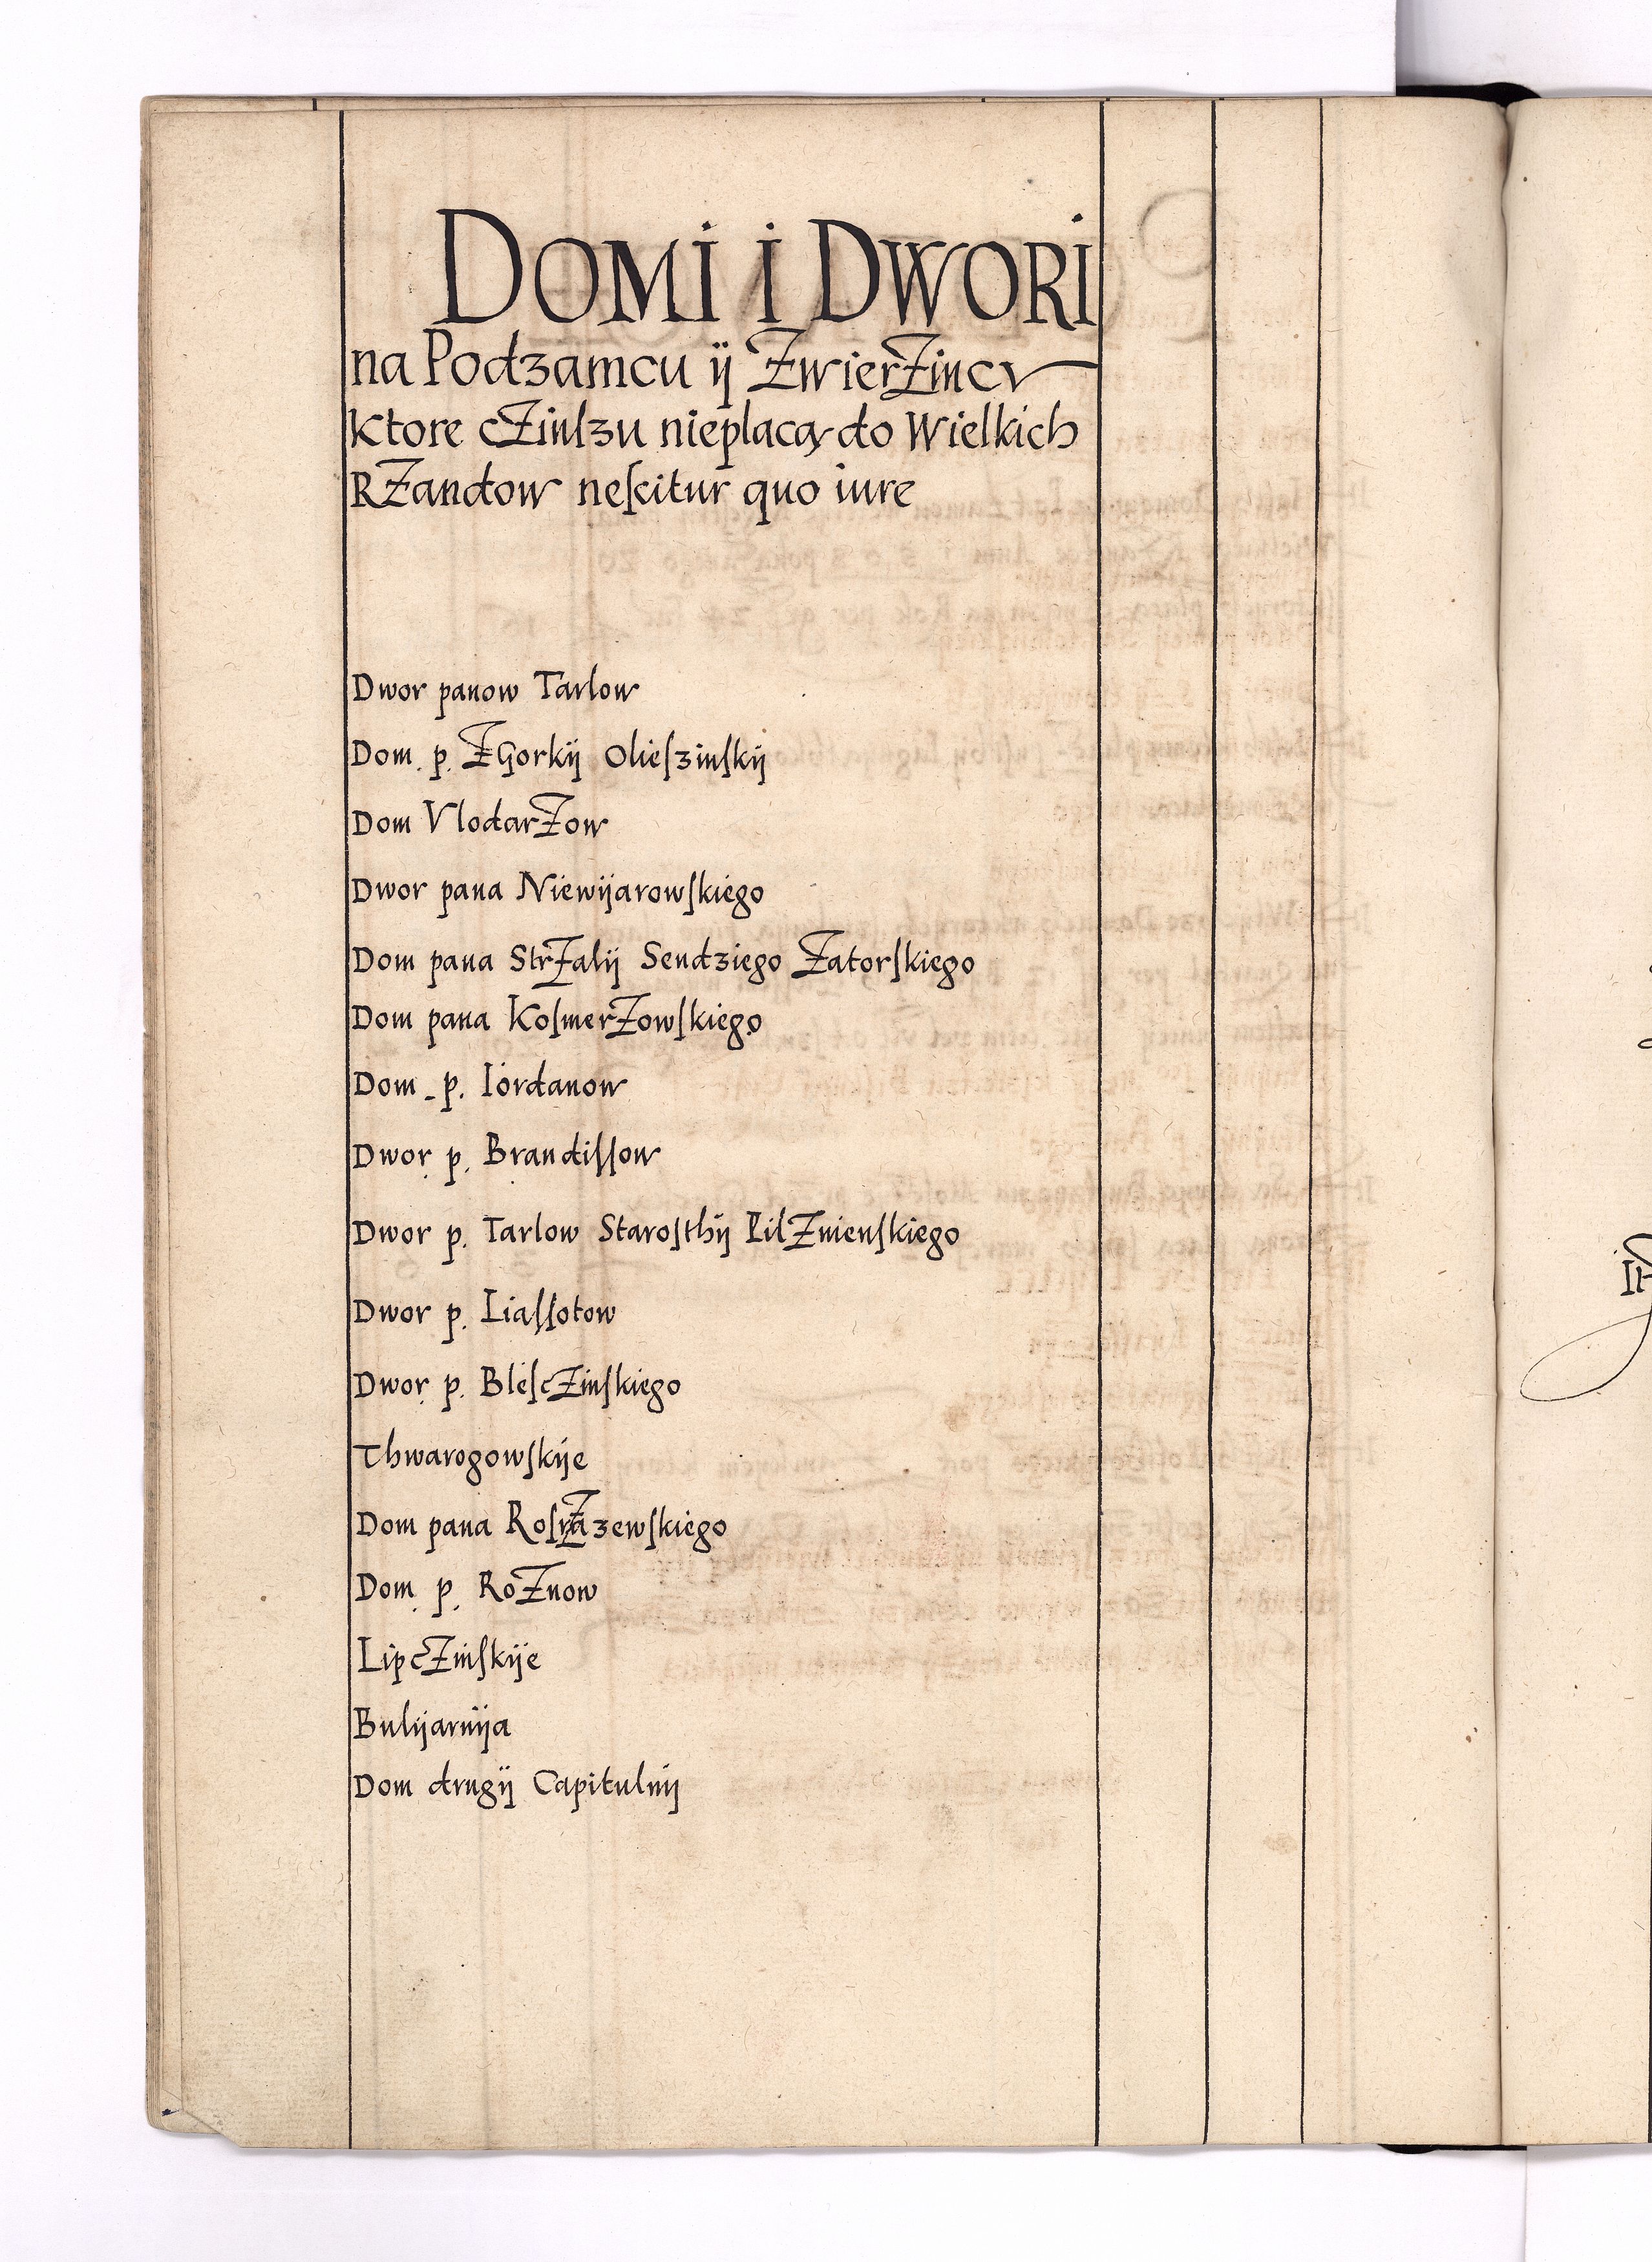 DOMI I DWORI
na Podzamcu ij ZwierZincv
ktore cZinſzu nieplacą do Wielkich
RZandow neſcitur quo iure
Dwor panow Tarlow
Dom. p. ZGorkij Olieſzinſkij
Dom VlodarZow
Dwor pana Niewijarowſkiego
Dom pana StrZalij Sendziego Zatorſkiego
Dom pana KoſmerZowſkiego
Dom p. Iordanow
Dwor p. Brandiſſow
Dwor p. Tarlow Staroſthij PilZnienſkiego
Dwor p. Liaſſotow
Dwor p. BleſcZinſkiego
Thwarogowſkije
Dom pana
Dom p. RoZnow
LipcZinſkije
Bulijarnija
Dom drugij Capitulnij